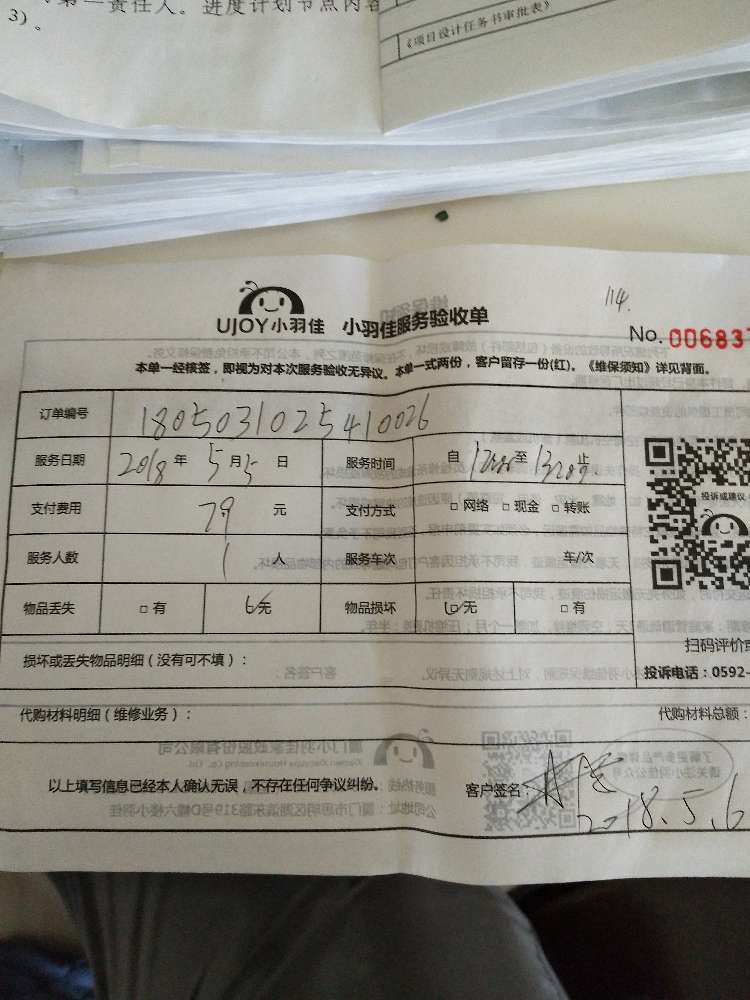 第一责任人。进度计划节点内容
3)。
《项目设计任务书审批表》
114.
UJOY小羽佳 小羽佳服务验收单
No. 00683
本单一经核签，即视为对本次服务验收无异议。本单一式两份，客户留存一份(红)。《维保须知》详见背面。
订单编号 1805031025410026
服务日期 2018 年 5 月 5 日 服务时间 自 至 止
支付费用 79 元 支付方式 □ 网络 □ 现金 □ 转账
服务人数 1 人 服务车次 车/次
物品丢失 □ 有 □ 无 物品损坏 □ 无 □ 有
投诉或建议
扫码评价或
损坏或丢失物品明细（没有可不填）：
投诉电话：0592-
代购材料明细（维修业务）：
代购材料总额：
以上填写信息已经本人确认无误，不存在任何争议纠纷。
客户签名：
2018.5.6